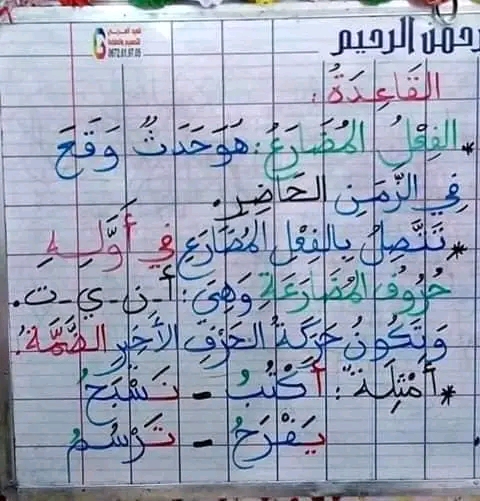 رحمن الرحيم
0672.81.97.05
القَاعِدَةُ:
* الفِعْلُ المُضَارَعُ: هُوَ حَدَثٌ وَقَعَ
فِي الزَّمَنِ الحَاضِرِ.
* تَتَّصِلُ بِالفِعْلِ المُضَارَعِ فِي أَوَّلِهِ
حُرُوفُ المُضَارَعَةِ وَهِيَ: أ - ن - ي - ت.
وَتَكُونُ حَرَكَةُ الحَرْفِ الأَخِيرِ الضَّمَّةُ.
* أَمْثِلَةٌ: أَكْتُبُ - نَسْبَحُ
يَفْرَحُ - تَرْسُمُ